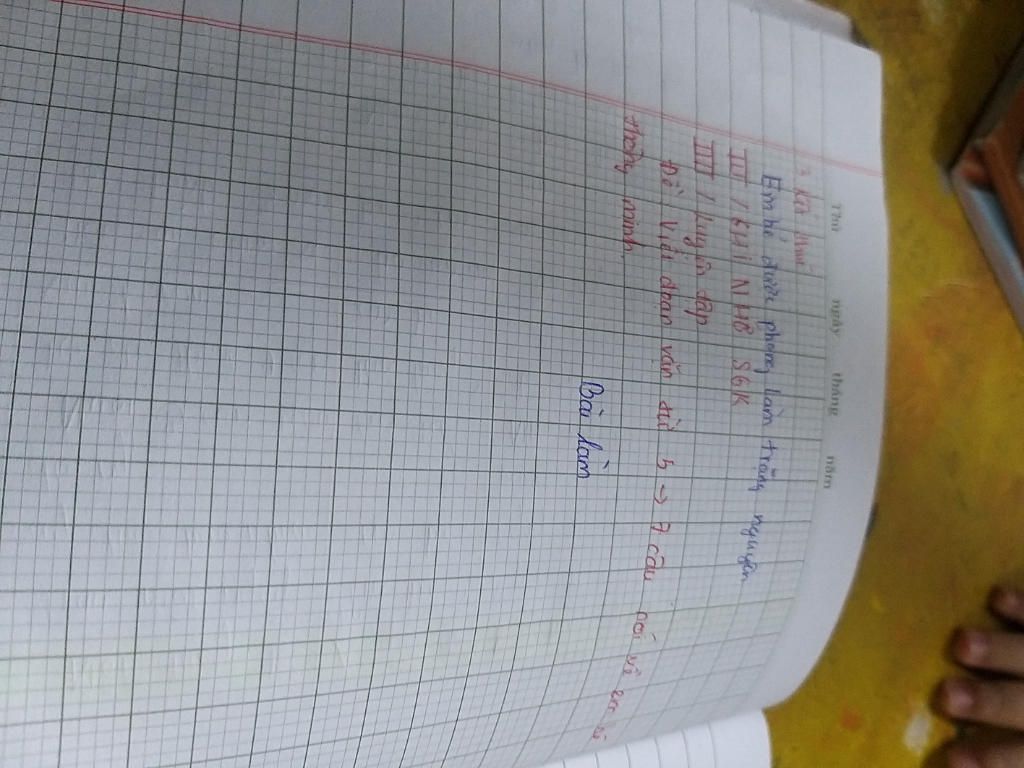 Thứ ngày tháng năm
3 Kết thúc
Em bé được phong làm trạng nguyên
III / GHI NHỚ SGK
III / Luyện tập
Đề: Viết đoạn văn từ 5 → 7 câu nói về em bé
thông minh.
Bài làm